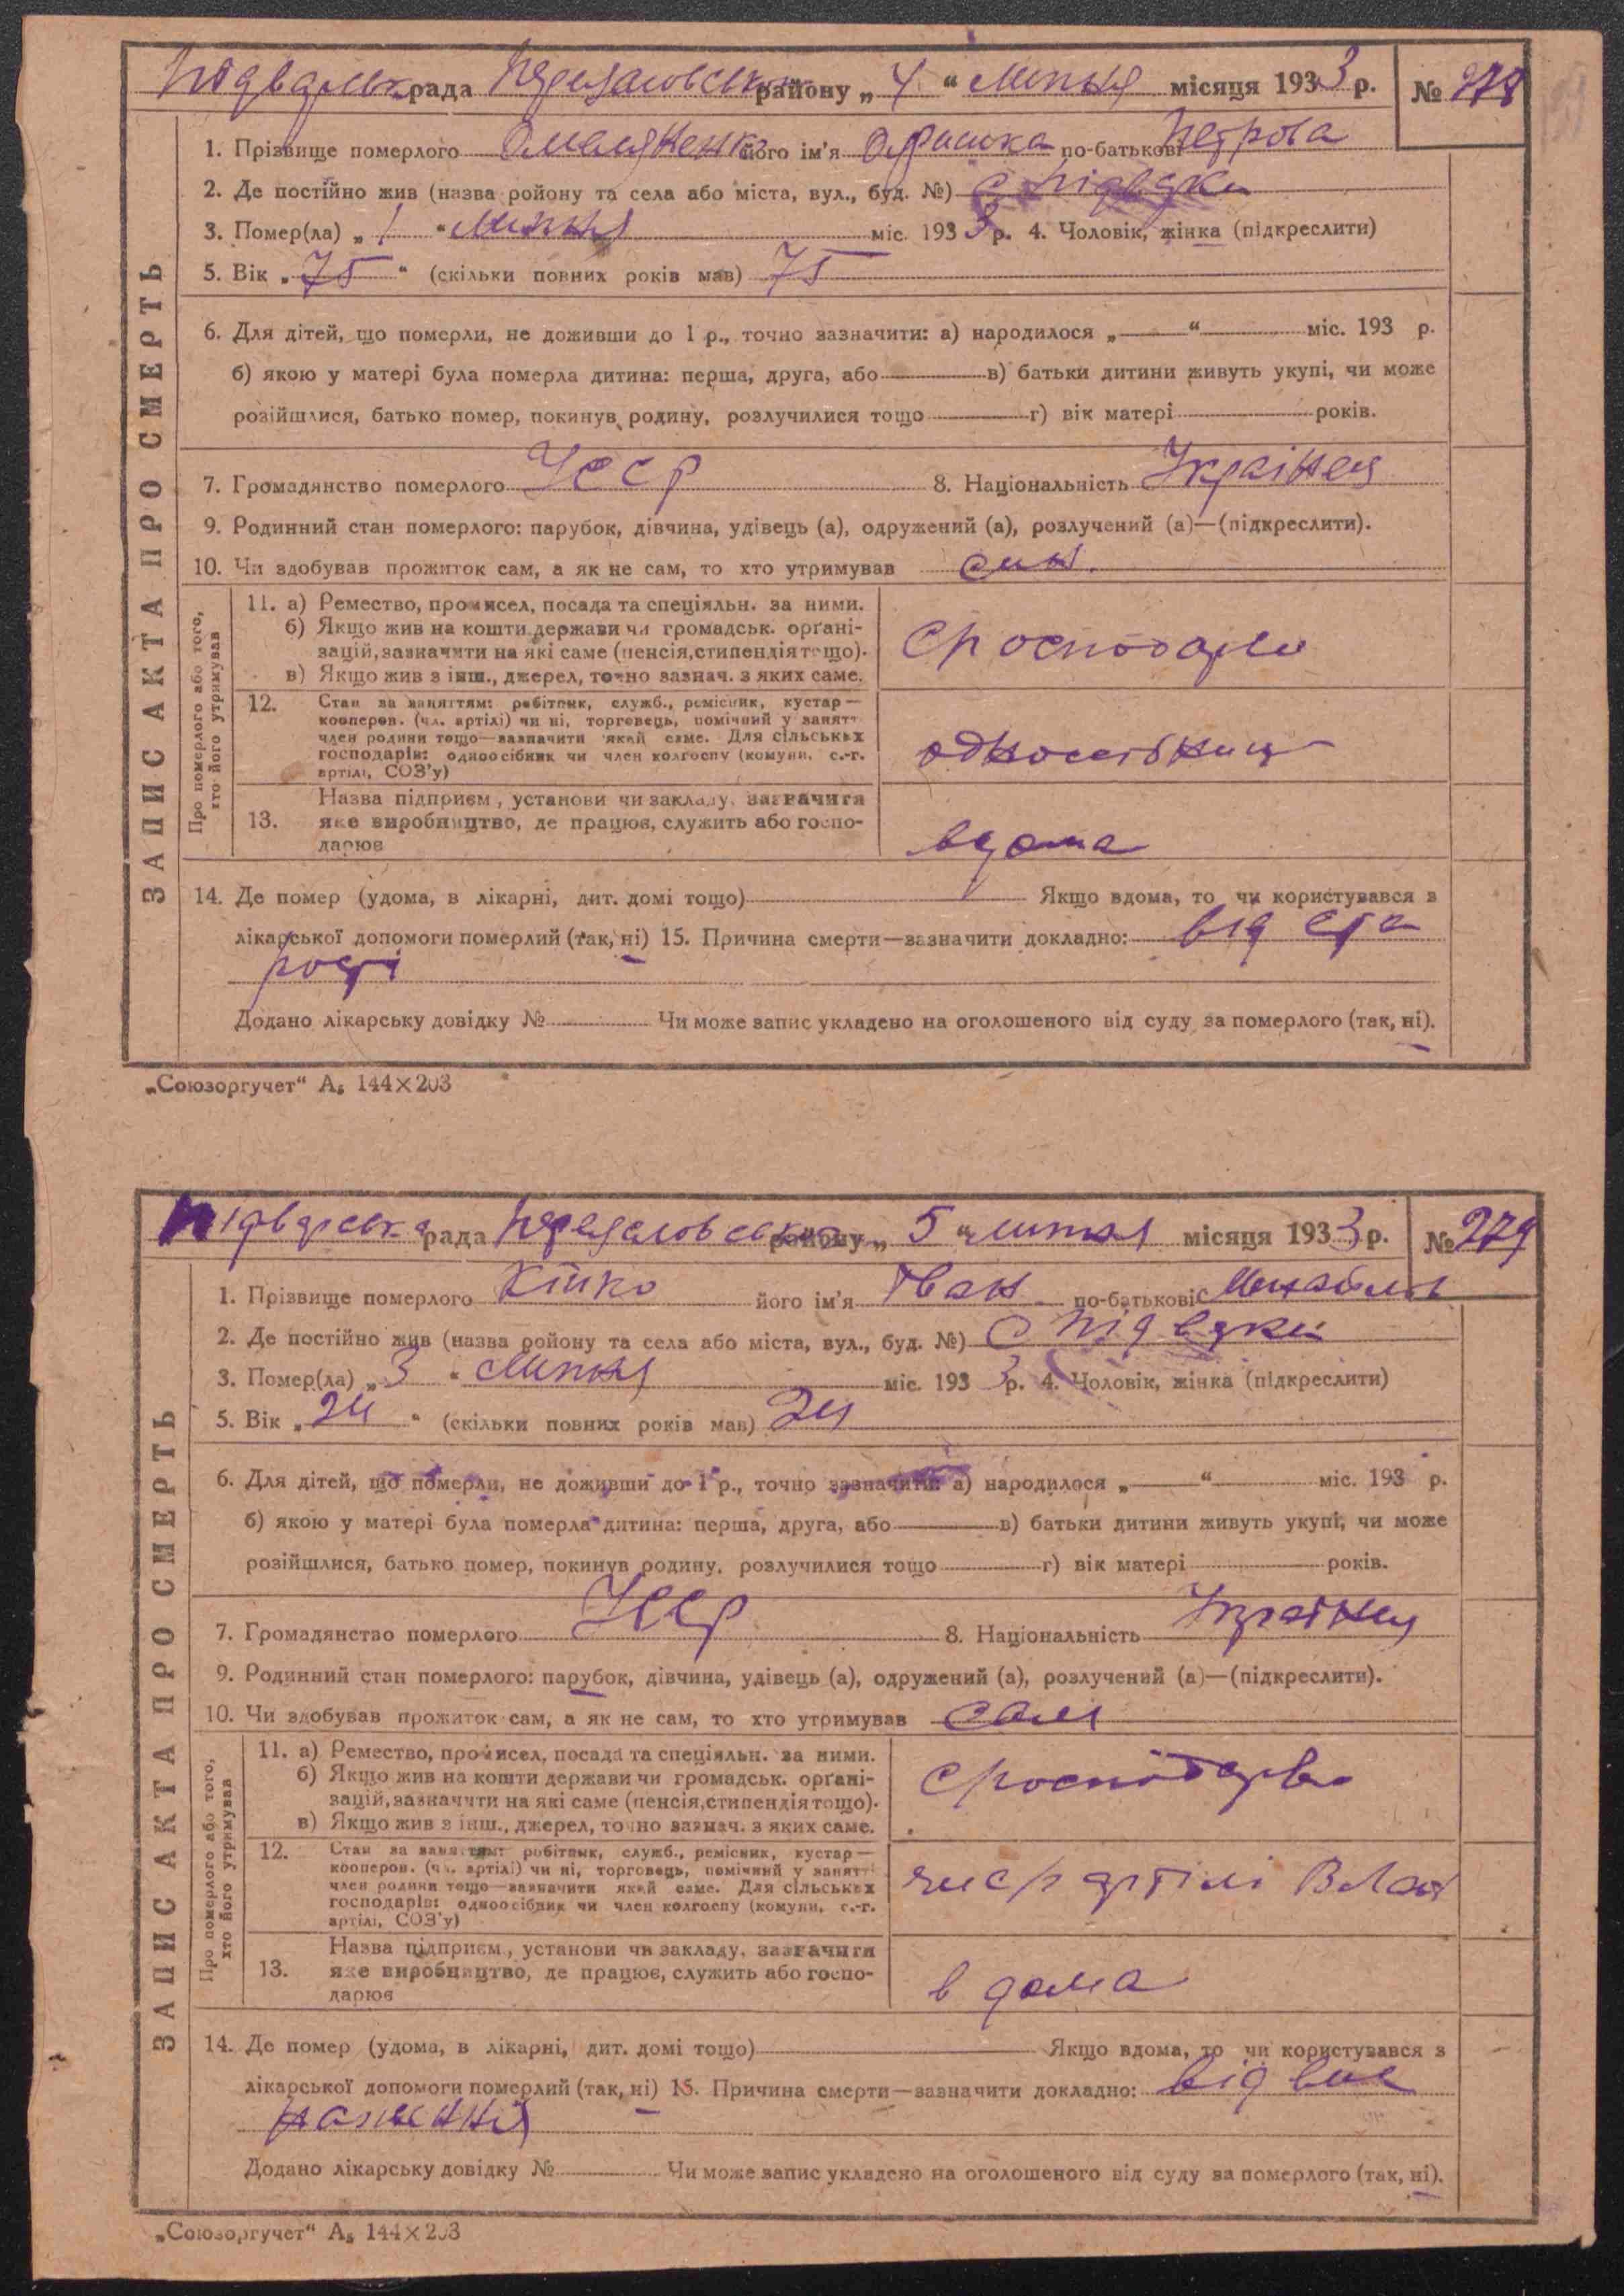 рада району „ 4 “ липня місяця 1933 р. № 278
1. Прізвище померлого Омеляненко його ім'я Оришка по-батькові Петрова
2. Де постійно жив (назва ройону та села або міста, вул., буд. №) с Підварки
3. Помер(ла) „ 1 “ липня міс. 1933 р. 4. Чоловік, жінка (підкреслити)
5. Вік „ 75 “ (скільки повних років мав) 75
6. Для дітей, що померли, не доживши до 1 р., точно зазначити: а) народилося „ “ міс. 193 р.
б) якою у матері була померла дитина: перша, друга, або в) батьки дитини живуть укупі, чи може
розійшлися, батько помер, покинув родину, розлучилися тощо г) вік матері років.
7. Громадянство померлого УССР 8. Національність Українец
9. Родинний стан померлого: парубок, дівчина, удівець (а), одружений (а), розлучений (а)—(підкреслити).
10. Чи здобував прожиток сам, а як не сам, то хто утримував син.
ЗАПИС АКТА ПРО СМЕРТЬ
Про померлого або того,
хто його утримував
11. а) Ремество, промисел, посада та спеціяльн. за ними.
б) Якщо жив на кошти держави чи громадськ. орґані-
зацій, зазначити на які саме (пенсія, стипендія тощо).
в) Якщо жив з інш., джерел, точно зазнач. з яких саме.
12. Стан за заняттям: робітник, служб., ремісник, кустар—
кооперов. (чл. артілі) чи ні, торговець, помічний у занятт
член родини тощо—зазначити який саме. Для сільських
господарів: одноосібник чи член колгоспу (комуни, с.-г.
артілі, СОЗ'у)
одноосібниц
Назва підприєм., установи чи закладу, зазначити
13. яке виробництво, де працює, служить або госпо-
дарює
вдома
14. Де помер (удома, в лікарні, дит. домі тощо) Якщо вдома, то чи користувався з
лікарської допомоги померлий (так, ні) 15. Причина смерти—зазначити докладно: від ста
рості
Додано лікарську довідку № Чи може запис укладено на оголошеного від суду за померлого (так, ні).
„Союзоргучет“ А₅ 144×203
Підварська рада району „ 5 “ липня місяця 1933 р. № 279
1. Прізвище померлого Кійко його ім'я Іван по-батькові
2. Де постійно жив (назва ройону та села або міста, вул., буд. №) с Підварки
3. Помер(ла) „ 3 “ липня міс. 1933 р. 4. Чоловік, жінка (підкреслити)
5. Вік „ 24 “ (скільки повних років мав) 24
6. Для дітей, що померли, не доживши до 1 р., точно зазначити: а) народилося „ “ міс. 193 р.
б) якою у матері була померла дитина: перша, друга, або в) батьки дитини живуть укупі, чи може
розійшлися, батько помер, покинув родину, розлучилися тощо г) вік матері років.
7. Громадянство померлого УССР 8. Національність Українец
9. Родинний стан померлого: парубок, дівчина, удівець (а), одружений (а), розлучений (а)—(підкреслити).
10. Чи здобував прожиток сам, а як не сам, то хто утримував сам
ЗАПИС АКТА ПРО СМЕРТЬ
Про померлого або того,
хто його утримував
11. а) Ремество, промисел, посада та спеціяльн. за ними.
б) Якщо жив на кошти держави чи громадськ. орґані-
зацій, зазначити на які саме (пенсія, стипендія тощо).
в) Якщо жив з інш., джерел, точно зазнач. з яких саме.
12. Стан за заняттям: робітник, служб., ремісник, кустар—
кооперов. (чл. артілі) чи ні, торговець, помічний у занятті
член родини тощо—зазначити який саме. Для сільських
господарів: одноосібник чи член колгоспу (комуни, с.-г.
артілі, СОЗ'у)
артілі
Назва підприєм., установи чи закладу, зазначити
13. яке виробництво, де працює, служить або госпо-
дарює
в дома
14. Де помер (удома, в лікарні, дит. домі тощо) Якщо вдома, то чи користувався з
лікарської допомоги померлий (так, ні) 15. Причина смерти—зазначити докладно: від вис
наження
Додано лікарську довідку № Чи може запис укладено на оголошеного від суду за померлого (так, ні).
„Союзоргучет“ А₅ 144×203